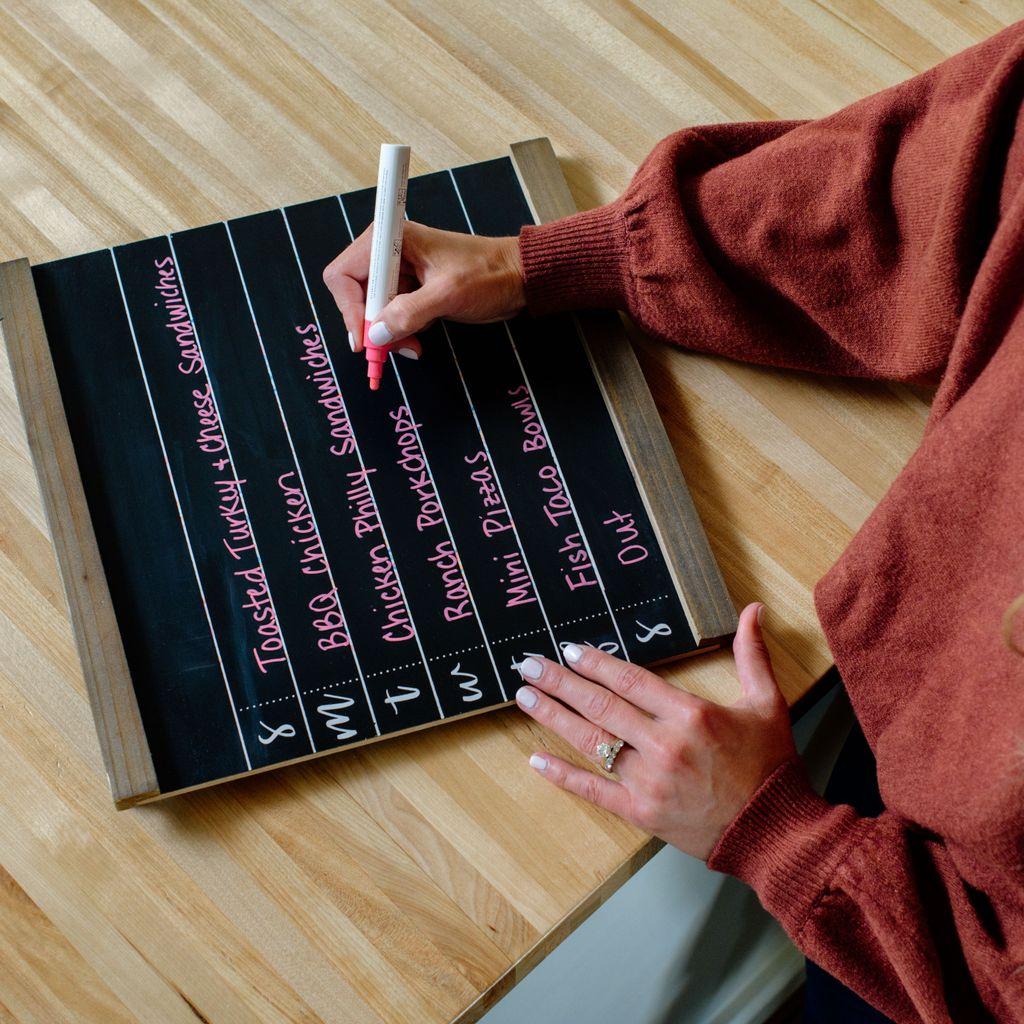 s Toasted Turkey & Cheese Sandwiches
m BBQ Chicken
t Chicken Philly Sandwiches
w Ranch Porkchops
t Mini Pizzas
Fish Taco Bowls
s Out